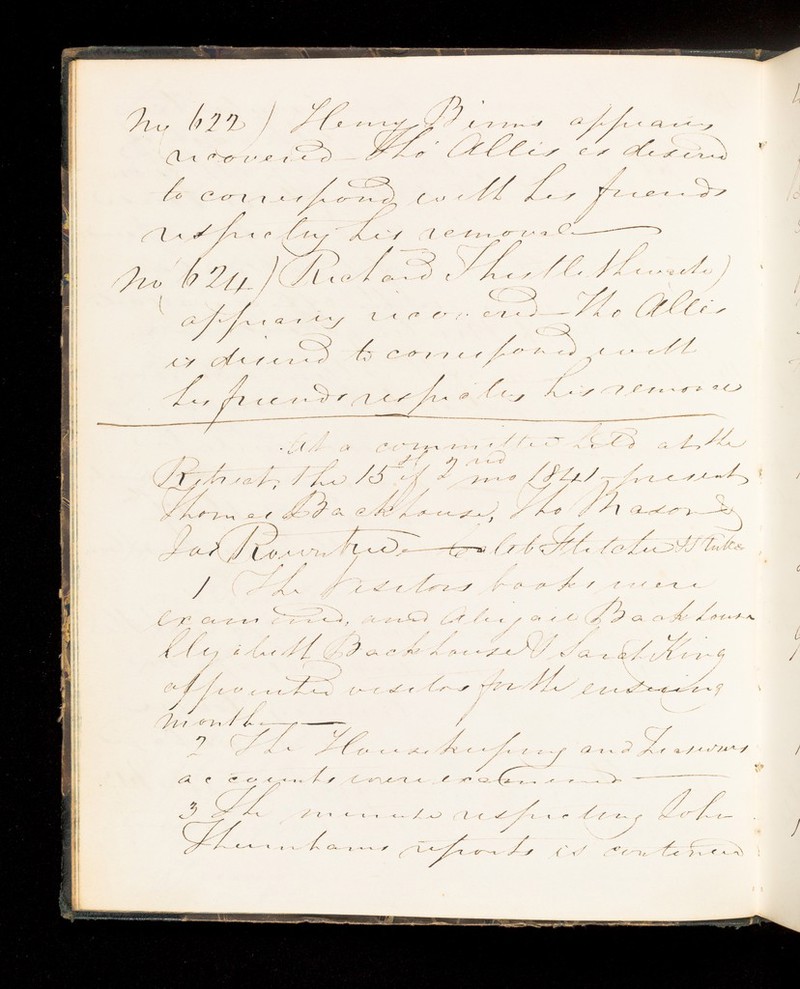 No 622) Henry Binns appearing
recovered - Tho Allis is desired
to correspond with his friends
respecting his removal
No 624) Richard Thistlethwaite)
appearing recovered - Tho Allis
is desired to correspond with
his friends respecting his removal
At a committee held at the
Retreat, the 15th of 2nd mo 1841 - present
Thomas Backhouse, Tho Mason &
Jos Rowntree - Caleb Fletcher S Tuke
1 The Visitors books were
examined, and Abigail Backhouse
Elizabeth Backhouse & Sarah King
appointed visitors for the ensuing
month
2 The Housekeeping and Treasurers
accounts were examined
3 The minute respecting John
Thurnhams reports is continued